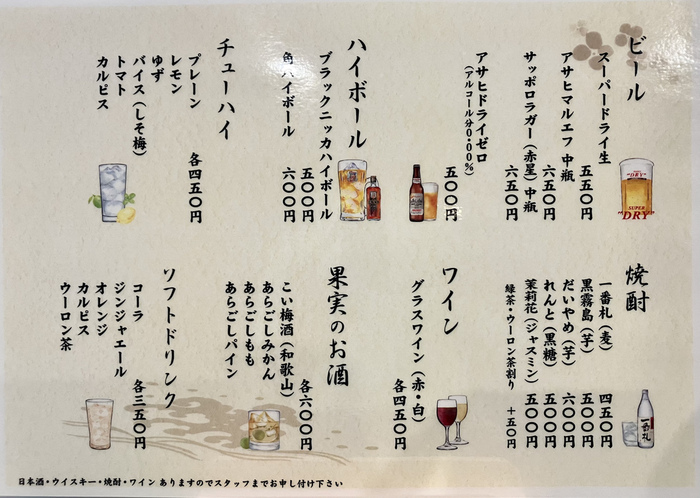 ビール
スーパードライ生 五五〇円
アサヒマルエフ 中瓶 六五〇円
サッポロラガー(赤星)中瓶 六五〇円
アサヒドライゼロ
(アルコール分0.00%) 五〇〇円
ハイボール
ブラックニッカハイボール 五〇〇円
角ハイボール 六〇〇円
チューハイ
プレーン 各四五〇円
レモン
ゆず
バイス(しそ梅)
トマト
カルピス
焼酎
一番札(麦) 四五〇円
黒霧島(芋) 五〇〇円
だいやめ(芋) 六〇〇円
れんと(黒糖) 五〇〇円
茉莉花(ジャスミン) 五〇〇円
緑茶・ウーロン茶割り +五〇円
ワイン
グラスワイン(赤・白) 各四五〇円
果実のお酒
こい梅酒(和歌山) 各六〇〇円
あらごしみかん
あらごしもも
あらごしパイン
ソフトドリンク
コーラ 各三五〇円
ジンジャエール
オレンジ
カルピス
ウーロン茶
日本酒・ウイスキー・焼酎・ワイン ありますのでスタッフまでお申し付け下さい
"DRY"
SUPER
"DRY"
一番札